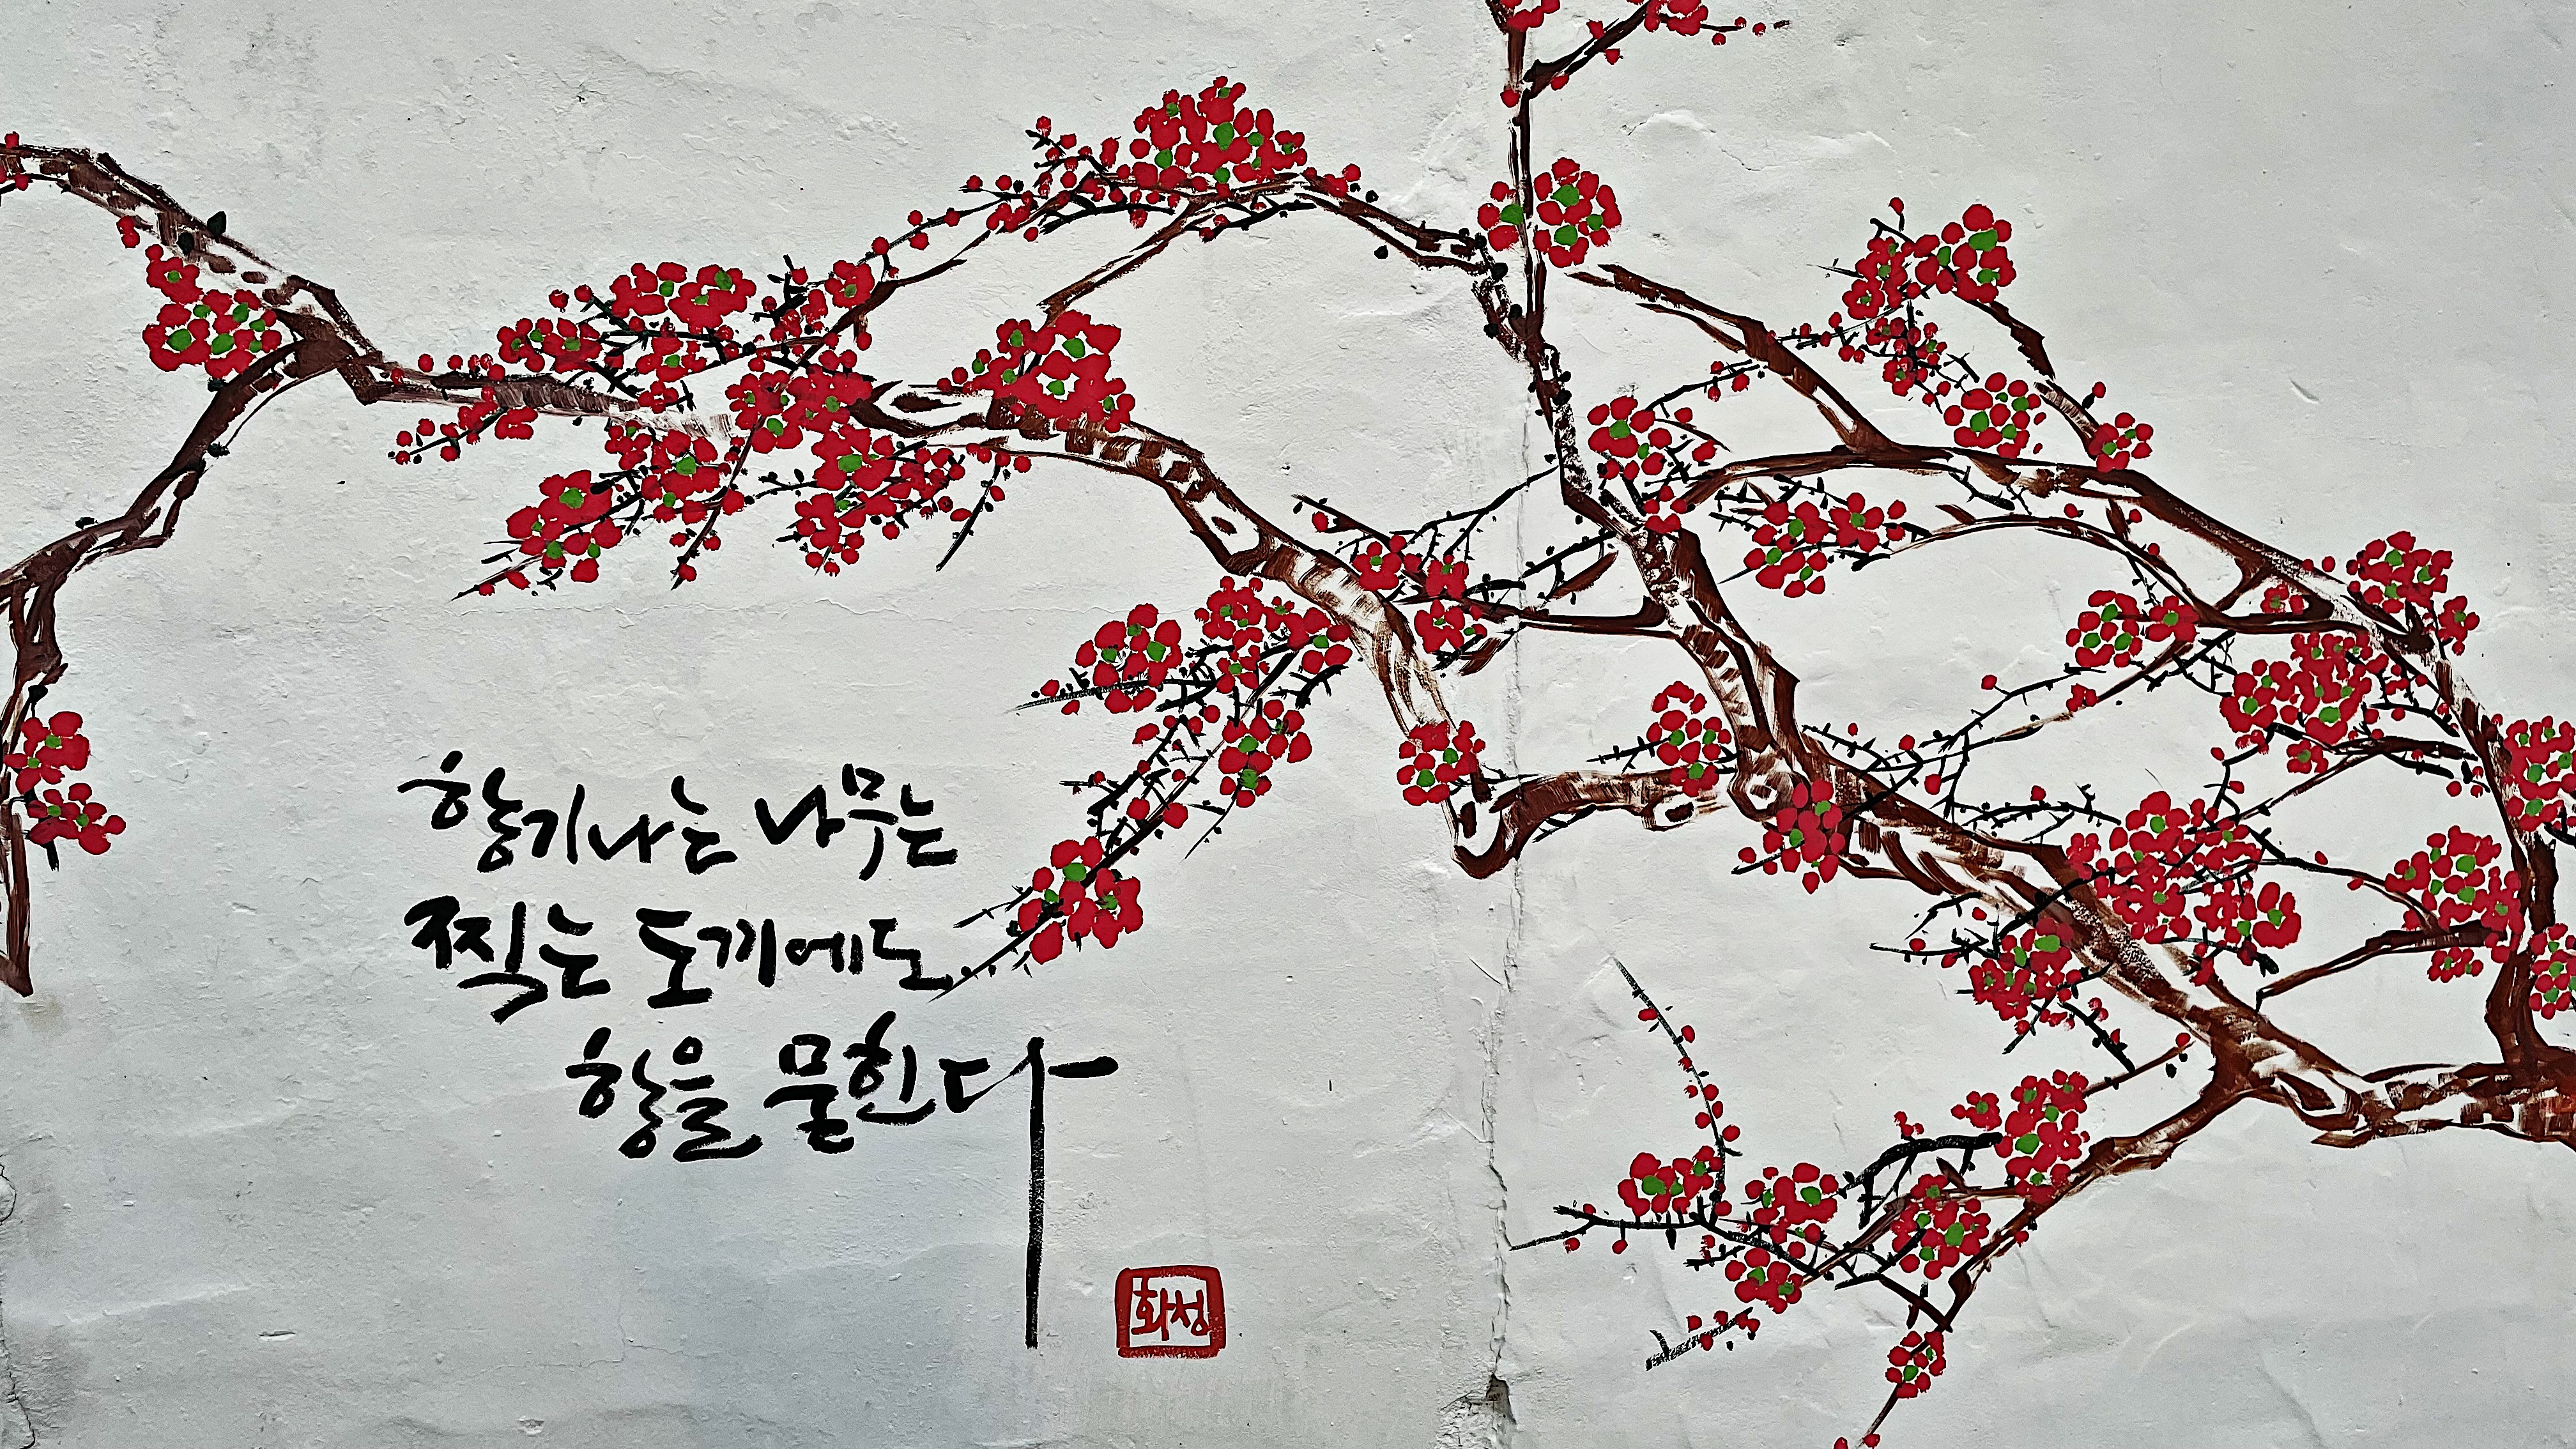 향기나는 나무는
찍는 도끼에도
향을 묻힌다
화성